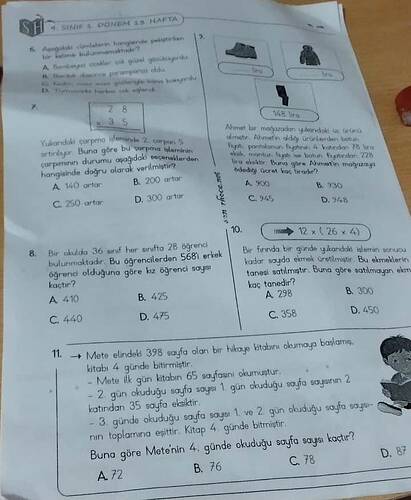 4. SINIF 2. DÖNEM 23. HAFTA
6. Aşağıdaki cümlelerin hangisinde pekiştirilen
bir kelime bulunmamaktadır?
çok güzel gözüküyordu.
paramparça oldu.
7.
2 8
x 3 5
Yukarıdaki çarpma işleminde 2. çarpan 5
artırılıyor. Buna göre bu çarpma işleminin
çarpımının durumu aşağıdaki seçeneklerden
hangisinde doğru olarak verilmiştir?
A. 140 artar
B. 200 artar
C. 250 artar
D. 300 artar
8. Bir okulda 36 sınıf her sınıfta 28 öğrenci
bulunmaktadır. Bu öğrencilerden 568'i erkek
öğrenci olduğuna göre kız öğrenci sayısı
kaçtır?
A. 410
B. 425
C. 440
D. 475
9.
lira
lira
148 lira
Ahmet bir mağazadan yukarıdaki üç ürünü
almıştır. Ahmet'in aldığı ürünlerden botun
fiyatı pantolonun fiyatının 4 katından 78 lira
eksik, montun fiyatı ise botun fiyatından 228
lira eksiktir. Buna göre Ahmet'in mağazaya
ödediği ücret kaç liradır?
A. 900
B. 930
C. 945
D. 948
10.
12 x ( 26 x 4 )
Bir fırında bir günde yukarıdaki işlemin sonucu
kadar sayıda ekmek üretilmiştir. Bu ekmeklerin
tanesi satılmıştır. Buna göre satılmayan ekm
kaç tanedir?
A. 298
B. 300
C. 358
D. 450
11. → Mete elindeki 398 sayfa olan bir hikaye kitabını okumaya başlamış,
kitabı 4 günde bitirmiştir.
- Mete ilk gün kitabın 65 sayfasını okumuştur.
- 2. gün okuduğu sayfa sayısı 1. gün okuduğu sayfa sayısının 2
katından 35 sayfa eksiktir.
- 3. günde okuduğu sayfa sayısı 1. ve 2. gün okuduğu sayfa sayısı-
nın toplamına eşittir. Kitap 4. günde bitmiştir.
Buna göre Mete'nin 4. günde okuduğu sayfa sayısı kaçtır?
A. 72
B. 76
C. 78
D. 87